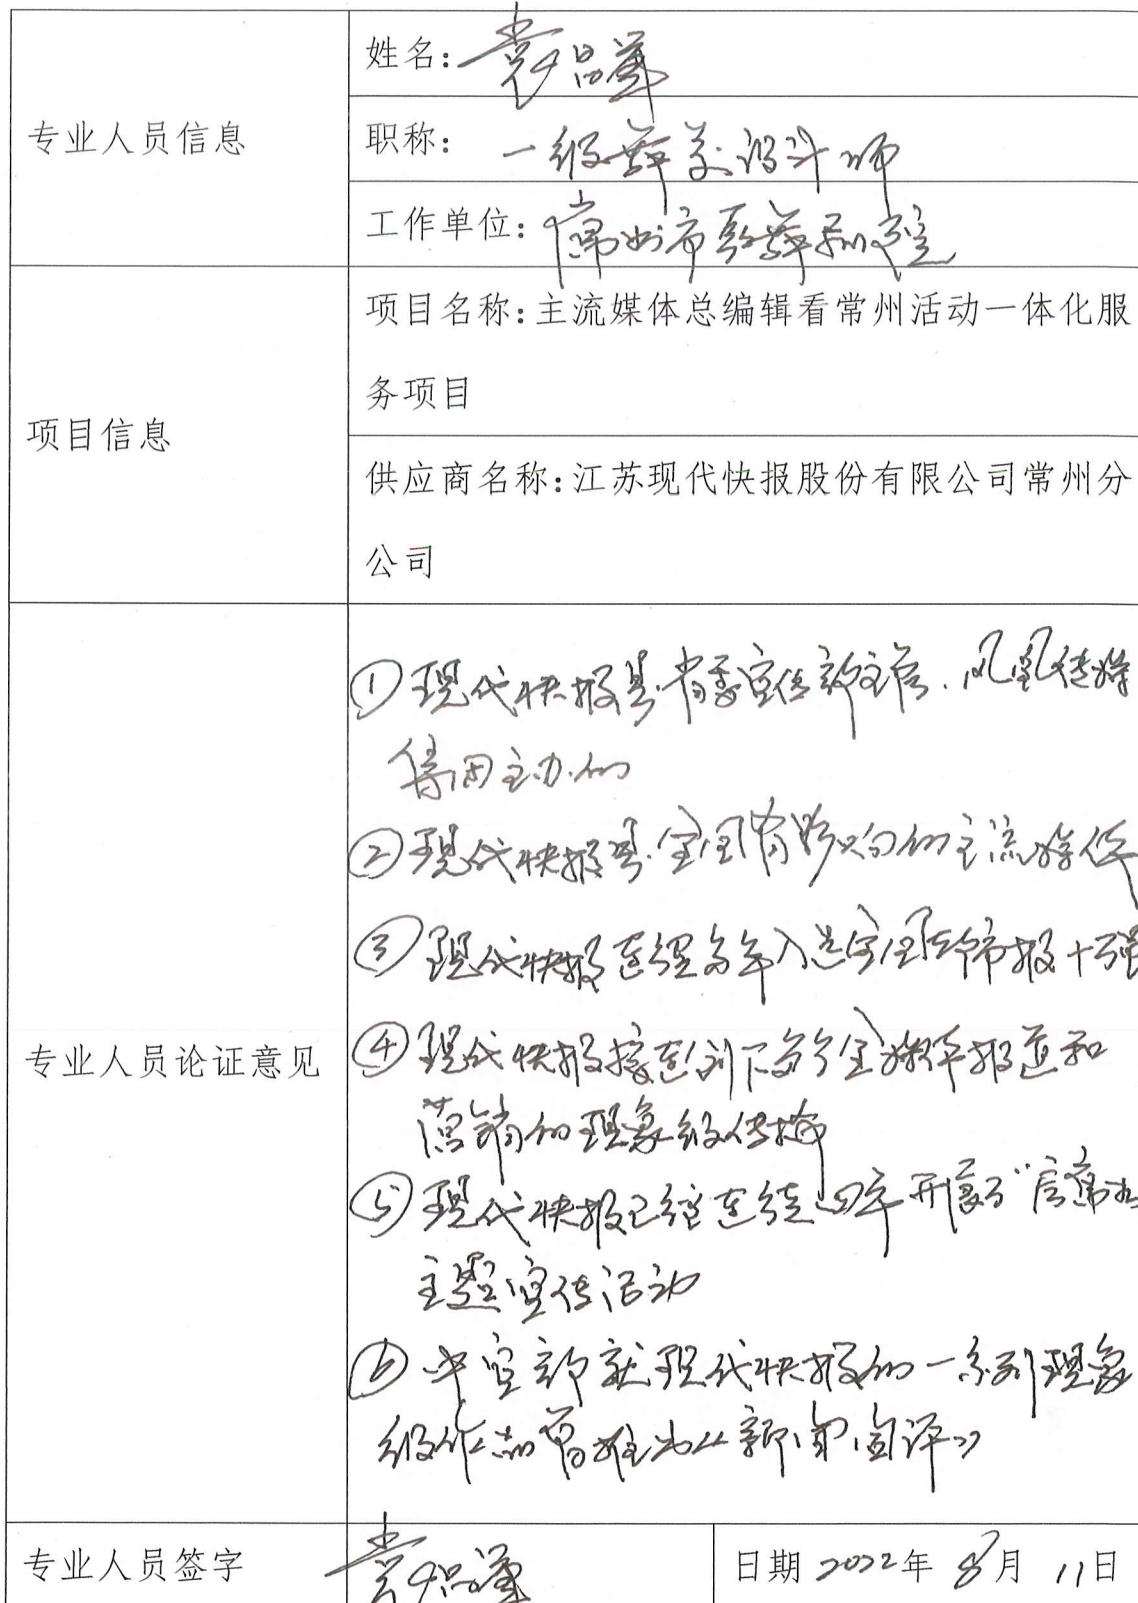 专业人员信息
姓名:
职称: 一级舞美设计师
工作单位: 常州市歌舞剧院
项目信息
项目名称:主流媒体总编辑看常州活动一体化服
务项目
供应商名称:江苏现代快报股份有限公司常州分
公司
专业人员论证意见
①现代快报是省委宣传部主管.凤凰传媒
集团主办的
②现代快报是全国有影响的主流媒体
③现代快报连续多年入选全国晚报十强
④现代快报接连创下多个全媒体报道和
营销的现象级传播
⑤现代快报已经连续四年开展了“
主题宣传活动
⑥中宣部就现代快报的一系列现象
级作品曾推出《新闻阅评》
专业人员签字
日期 2022年 8月 11日